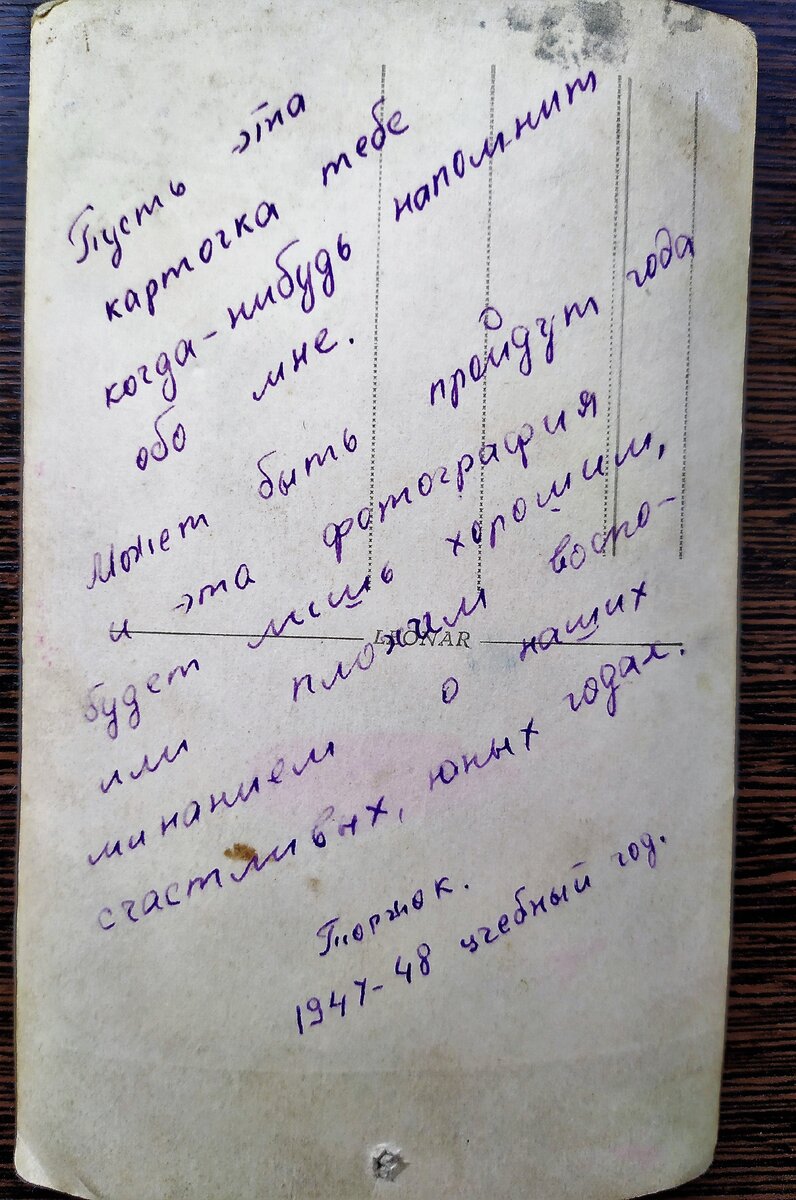 Пусть эта
карточка тебе
когда-нибудь напомнит
обо мне.
Может быть пройдут года
и эта фотография
будет лишь хорошим,
или плохим воспо-
минанием о наших
счастливых, юных годах.
Торжок.
1947-48 учебный год.
LEONAR